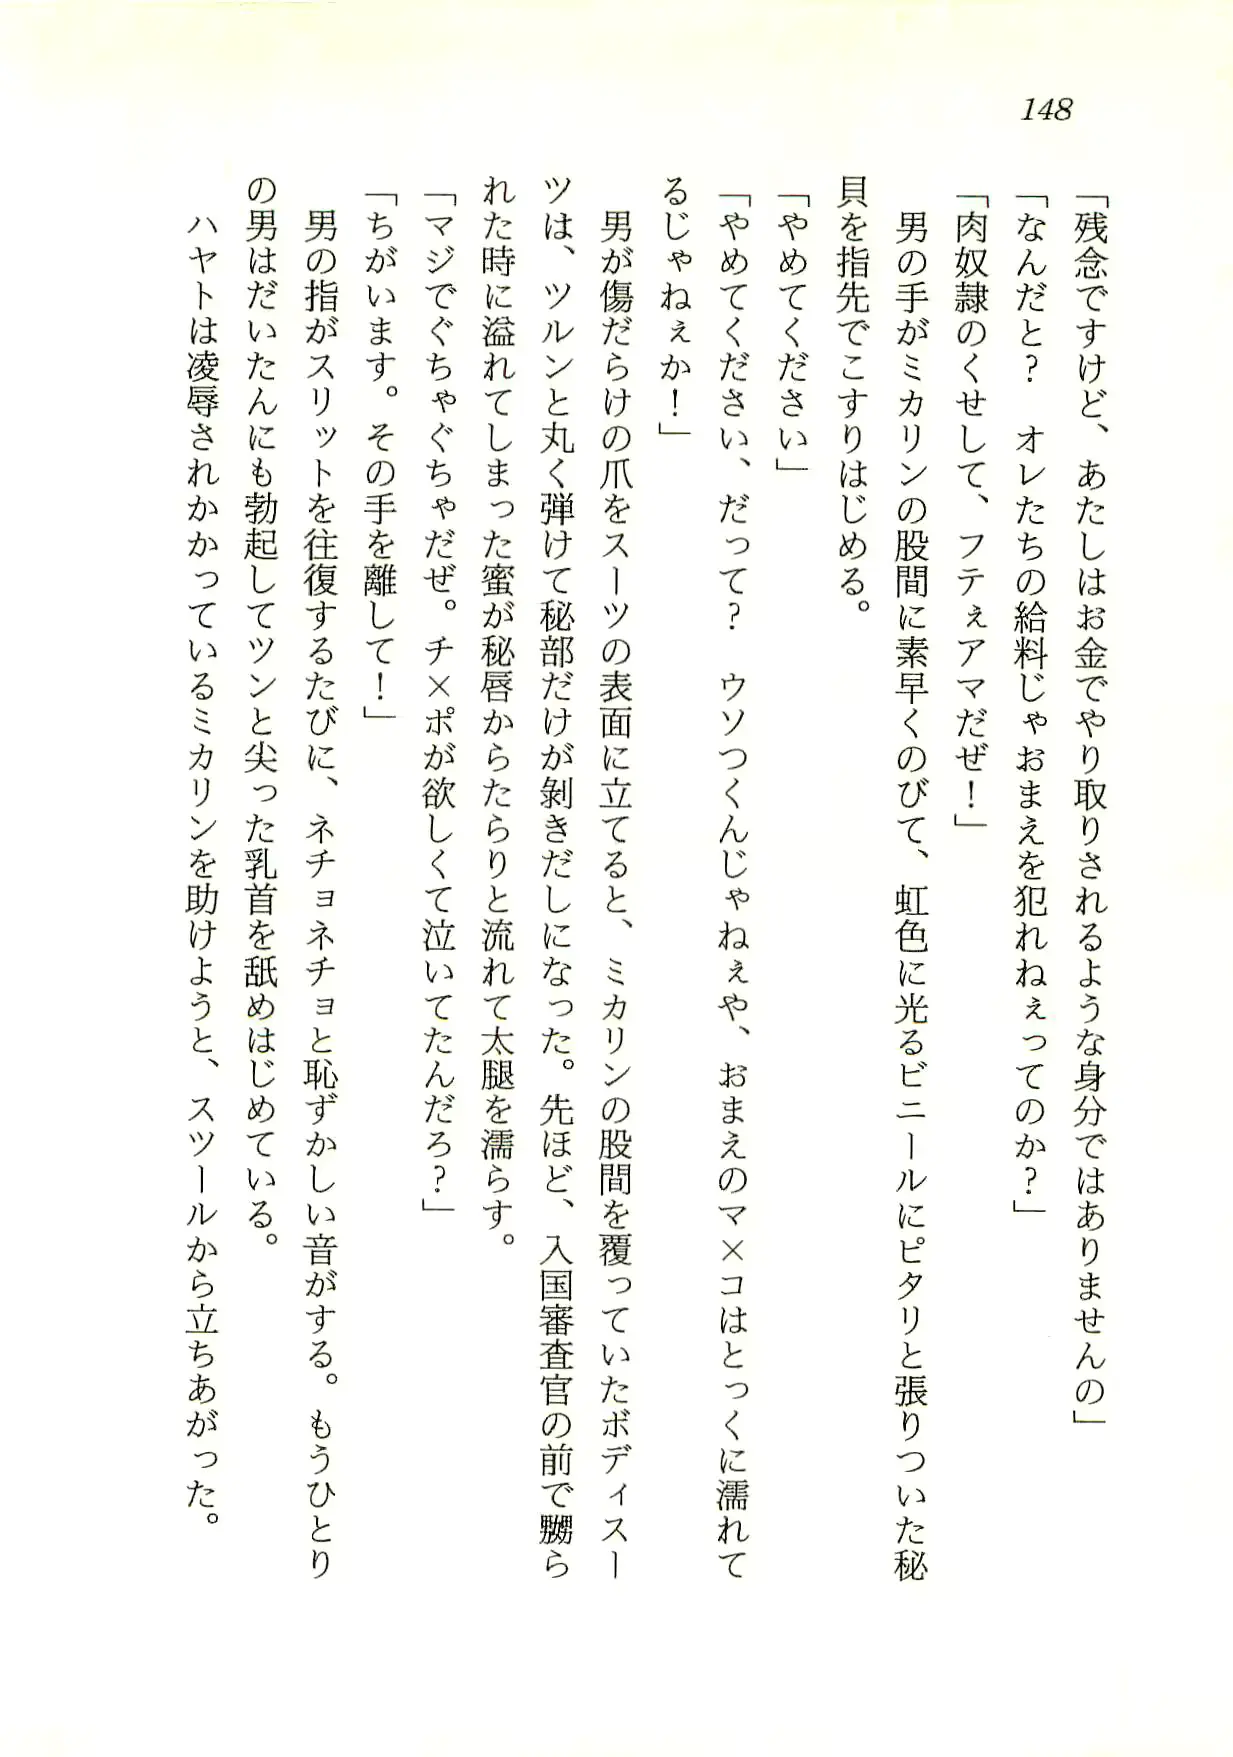 148
「残念ですけど、あたしはお金でやり取りされるような身分ではありませんの」
「なんだと？　オレたちの給料じゃおまえを犯れねぇってのか？」
「肉奴隷のくせして、フテぇアマだぜ！」
　男の手がミカリンの股間に素早くのびて、虹色に光るビニールにピタリと張りついた秘
貝を指先でこすりはじめる。
「やめてください」
「やめてください、だって？　ウソつくんじゃねぇや、おまえのマ×コはとっくに濡れて
るじゃねぇか！」
　男が傷だらけの爪をスーツの表面に立てると、ミカリンの股間を覆っていたボディスー
ツは、ツルンと丸く弾けて秘部だけが剝きだしになった。先ほど、入国審査官の前で嬲ら
れた時に溢れてしまった蜜が秘唇からたらりと流れて太腿を濡らす。
「マジでぐちゃぐちゃだぜ。チ×ポが欲しくて泣いてたんだろ？」
「ちがいます。その手を離して！」
　男の指がスリットを往復するたびに、ネチョネチョと恥ずかしい音がする。もうひとり
の男はだいたんにも勃起してツンと尖った乳首を舐めはじめている。
　ハヤトは凌辱されかかっているミカリンを助けようと、スツールから立ちあがった。